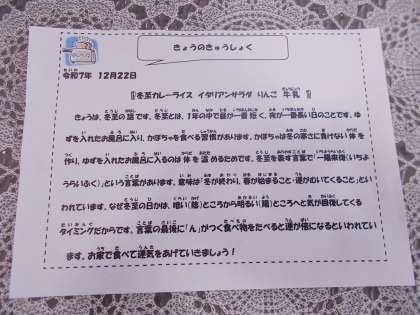 きょうのきゅうしょく
令和7年 12月22日
冬至カレーライス イタリアンサラダ りんご 牛乳
きょうは、冬至の話です。冬至とは、1年の中で昼が一番短く、夜が一番長い日のことです。ゆ
ずを入れたお風呂に入り、かぼちゃを食べる習慣があります。かぼちゃは冬の寒さに負けない体を
作り、ゆずを入れたお風呂に入るのは体を温めるためです。冬至を表す言葉で「一陽来復(いちよ
うらいふく)」という言葉があります。意味は「冬が終わり、春が始まること・運がむいてくること」とい
われています。なぜ冬至の日かは、暗い(陰)ところから明るい(陽)ところへと気が回復してくる
タイミングだからです。言葉の最後に「ん」がつく食べ物をたべると運が倍になるといわれてい
ます。お家で食べて運気をあげていきましょう!